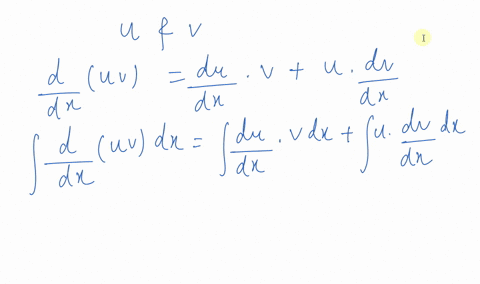 u & v
d/dx (uv) = du/dx . v + u . dv/dx
∫ d/dx (uv) dx = ∫ du/dx . v dx + ∫ u . dv/dx dx